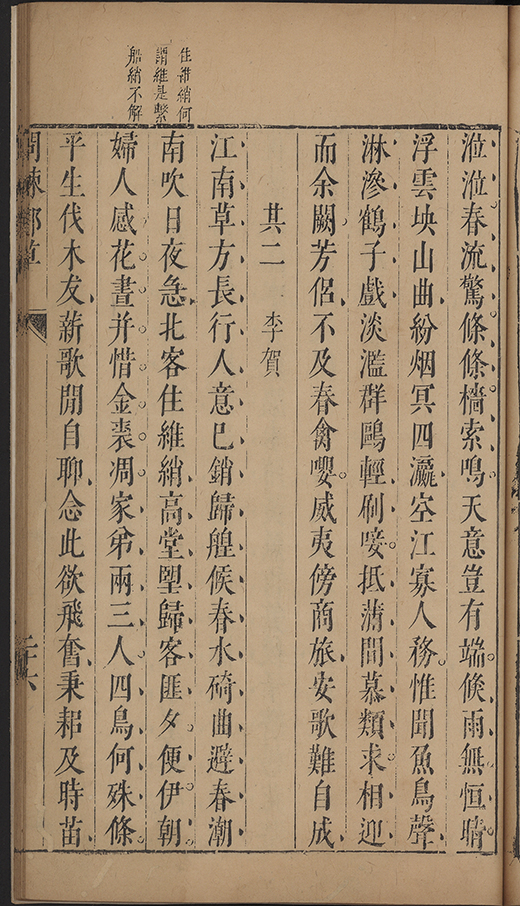 涖涖春流驚條條檣索鳴天意豈有端倐雨無恒晴
浮雲坱山曲紛烟冥四瀛空江寡人務惟聞魚鳥聲
淋滲鶴子戲淡濫群鷗輕刷唼抵蒲間慕類求相迎
而余闕芳侶不及春禽嚶威夷傍商旅安歌難自成
其二 李賀
江南草方長行人意巳銷歸艎候春水碕曲避春潮
南吹日夜急北客住維綃高堂朢歸客匪夕便伊朝
婦人感花晝并惜金裘凋家弟兩三人四鳥何殊條
平生伐木友薪歌閒自聊念此欲飛奮秉耜及時苗
住維綃何
謂維是繫
船綃不解
二六